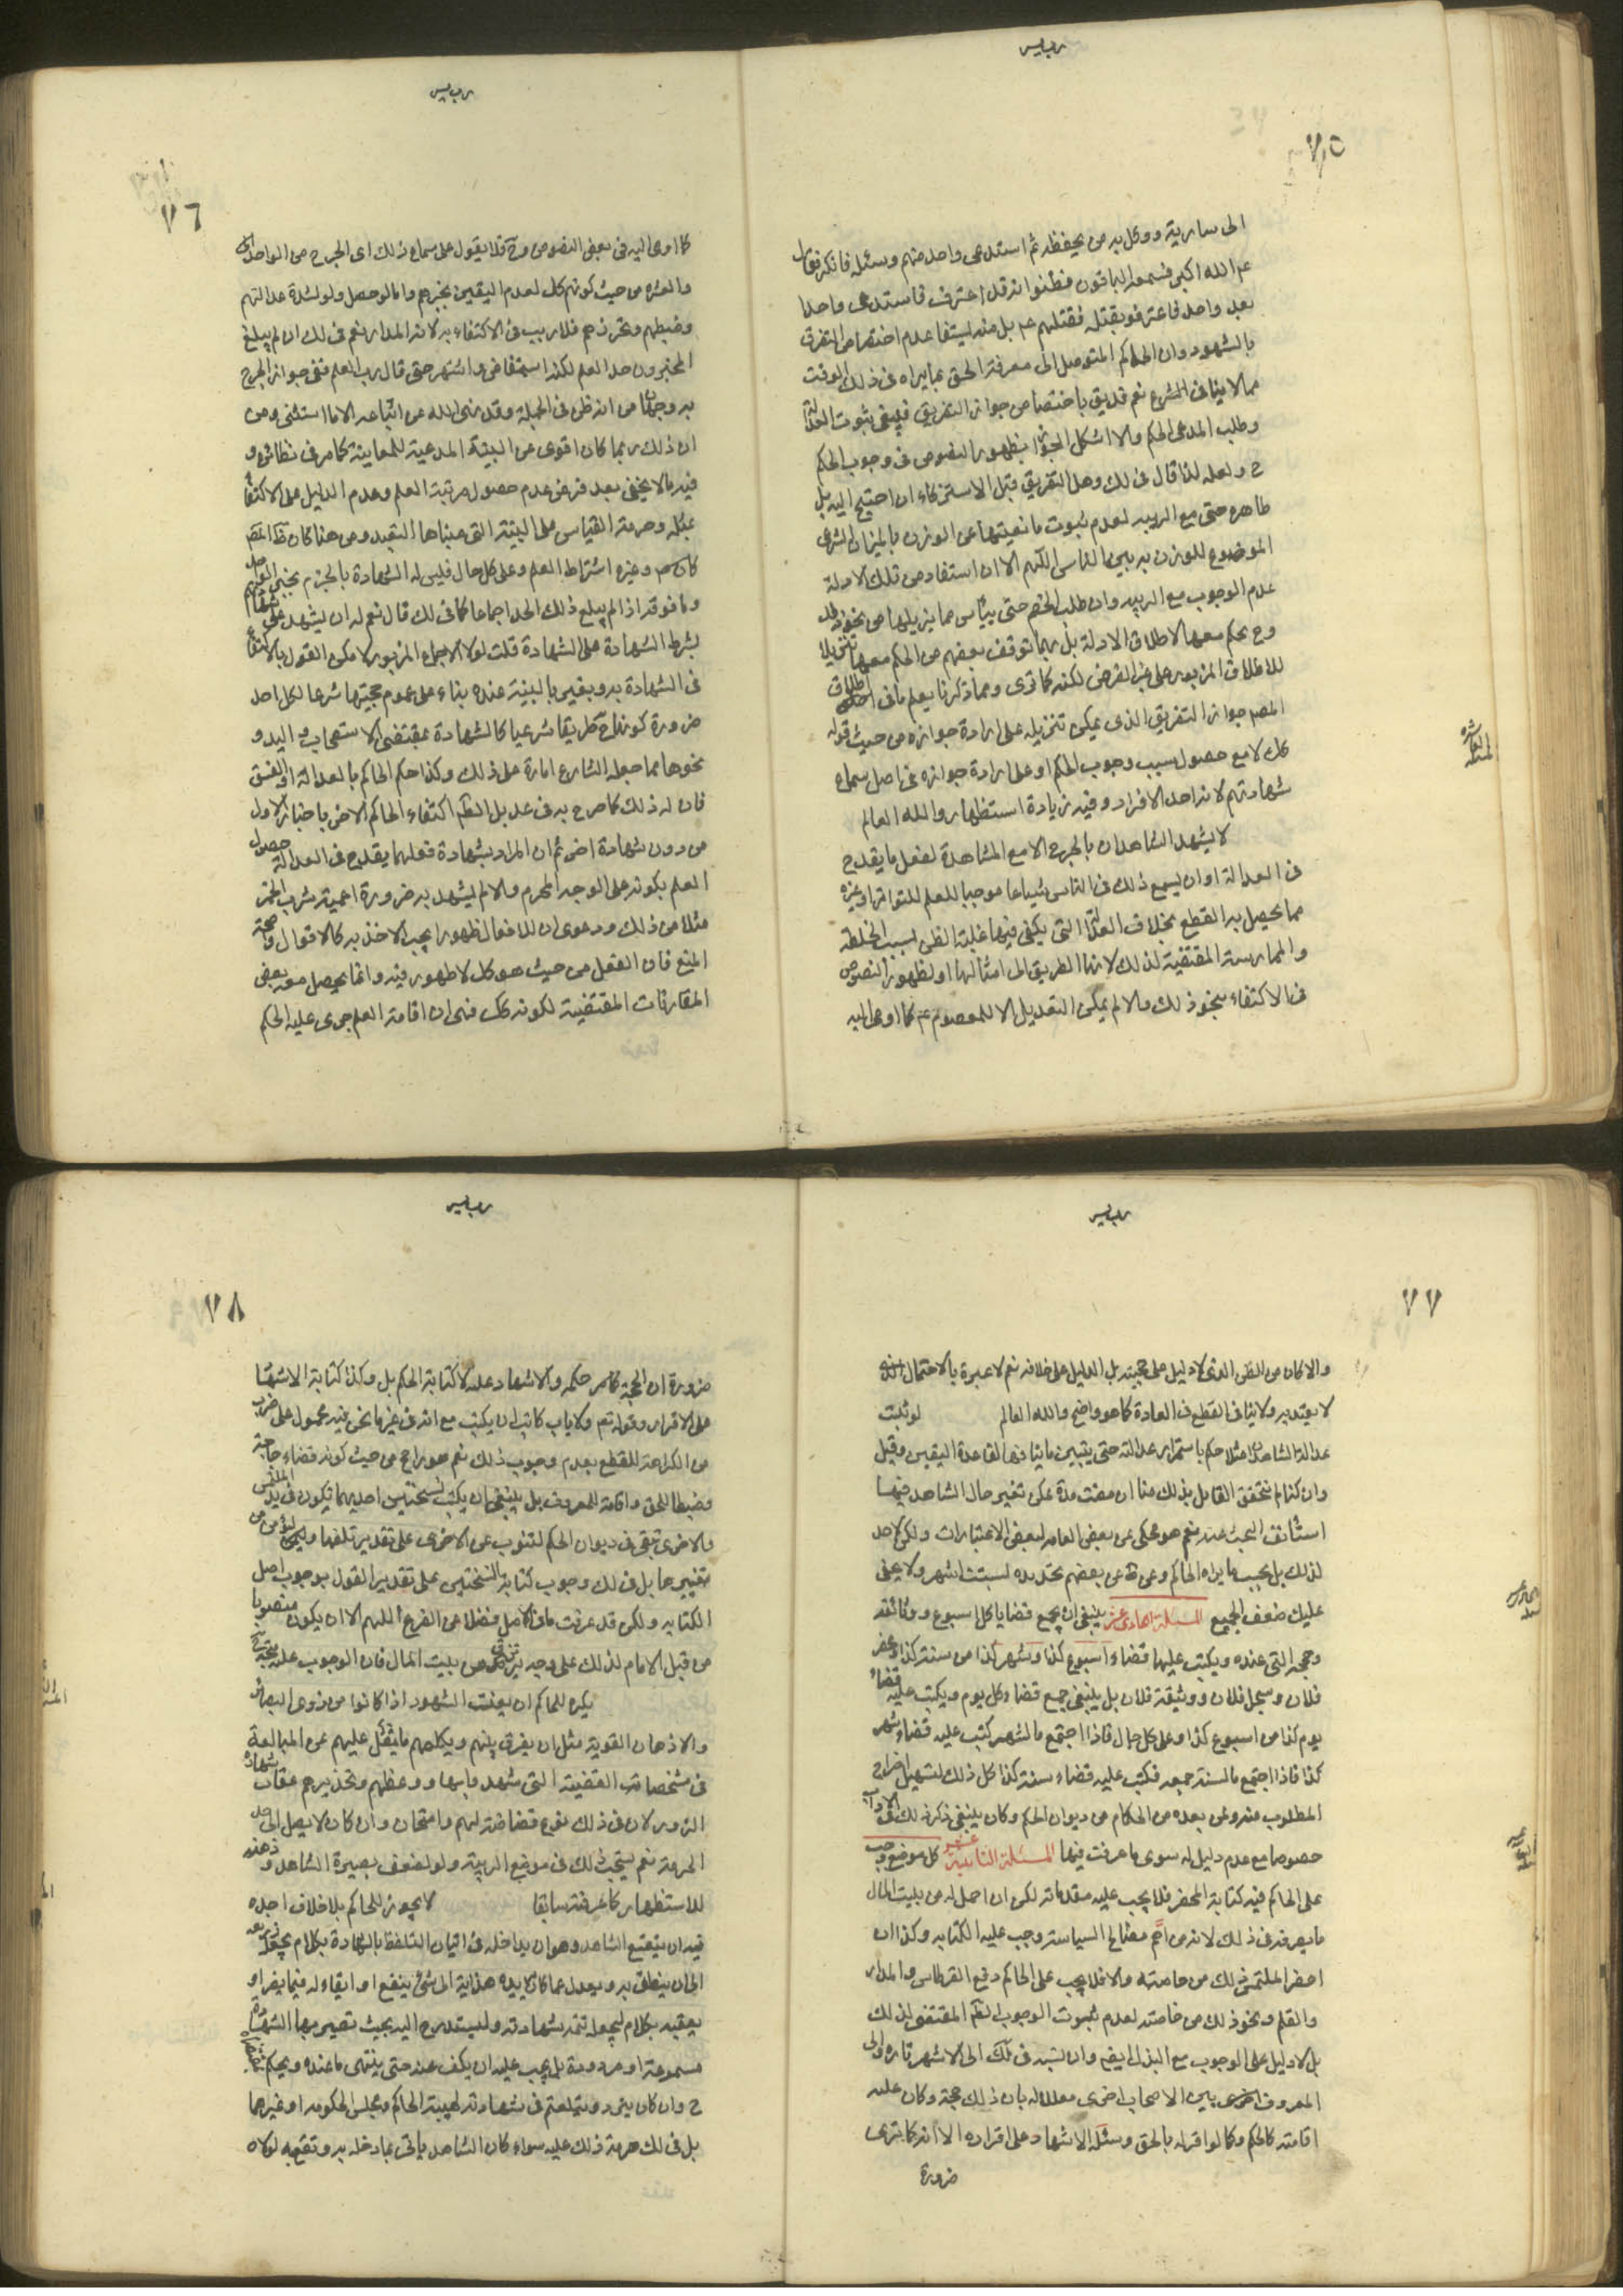 رب يسر
٧٥
الى سارية ووكل به من يحفظه ثم استدعى واحد منهم وسئله فانكر فقال
عم الله اكبر فسمعه الباقون فظنوا انه قد اعترف فاستدعى واحدا
بعد واحد فاعترفوا بقتله فقتلهم عم بل منه يستفاد عدم اختصاص التفرق
بالشهود وان الحاكم المتوصل الى معرفة الحق بما يراه فى ذلك الوقت
مما لا ينافى الشرع نعم قد يق باختصاص جواز التفريق فيبقى بثبوت العدالة
وطلب المدعى الحكم والا اشكل الجواز بظهور النصوص فى وجوب الحكم
ح ولعله لذا قال فى لك ومحل التفريق قبل الاستزكاء ان احتيج اليه بل
ظاهره حتى مع الريبه لعدم ثبوت مانعيتها عن الوزن بالميزان الشرعى
الموضوع للوزن به بين الناس اللهم الا ان استفاد من تلك الادلة
عدم الوجوب مع الريبه وان طلب الخصم حتى ييأس مما يزيلها من نحو ذلك
وح يحكم معها لاطلاق الادلة بل ربما توقف بعضهم من الحكم معها تنزيلا
للاطلاق المزبور على غير الفرض لكنه كما ترى ومما ذكرنا يعلم ما فى اطلاق
المصم جواز التفريق الذى يمكن تنزيله على ارادة جوازه من حيث قوله
كك لا مع حصول سبب وجوب الحكم او على ارادة جوازه فى اصل سماع
شهادتهم لانه احد الافراد وفيه زيادة استظهار والله العالم
لا يشهد الشاهدان بالجرح الا مع المشاهدة لفعل ما يقدح
فى العدالة او ان يسمع ذلك فى الناس شياعا موجبا للعلم للتواتر او غيره
مما يحصل به القطع بخلاف العدالة التى يكفى فيها غلبة الظن بسبب الخلطة
والممارسة المقتضية لذلك لانها الطريق الى امثالها او لظهور النصوص
فى الاكتفاء بنحو ذلك والا لم يمكن التعديل الا للمعصوم عم كما اومى اليه
المسئلة العاشره
رب يسر
٧٦
كما اومى اليه فى بعض النصوص وح فلا يعول على سماع ذلك اى الجرح من الواحد
والعشره من حيث كونهم كك لعدم اليقين بخبرهم واما لو حصل ولو لشدة عدالتهم
وضبطهم وتحرزهم فلا ريب فى الاكتفاء به لانه المدار نعم فى لك ان لم يبلغ
المخبرون حد العلم لكنه استفاض واشتهر حتى قارب العلم ففى جواز الجرح
به وجهان من انه ظن فى الجملة وقد نهى الله عن اتباعه الا ما استثنى ومن
ان ذلك ربما كان اقوى من البينة المدعية للمعاينة كما مر فى نظائره و
فيه ما لا يخفى بعد فرض عدم حصول مرتبة العلم وعدم الدليل على الاكتفاء
بمثله وحرمة القياس على البينة التى مبناها التعبد ومن هنا كان ظ المصم
كالمص وغيره اشتراط العلم وعلى كل حال فليس له الشهادة بالجزم بخبر الواحد
وما فوقه اذا لم يبلغ ذلك الحد اجماعا كما فى لك قال نعم له ان يشهد على شهادتهم
بشرط الشهادة على الشهادة قلت لولا الاجماع المزبور لامكن القول بالاكتفاء
فى الشهادة به وبغير بالبينة عنده بناء على عموم حجيتها شرعا لكل احد
ضرورة كونها ح طريقا شرعيا كالشهادة بمقتضى الاستصحاب واليد و
نحوها مما جعله الشارع امارة على ذلك وكذا حكم الحاكم بالعدالة او الفسق
فان له ذلك كما صرح به فى عد بل الظم اكتفاء الحاكم الاخر باخبار الاول
من دون شهادة اخرى ثم ان المراد بشهادة فعلهما يقدح فى العدالة حصول
العلم بكونه على الوجه المحرم والا لم يشهد به ضرورة اعمية شرب الخمر
مثلا من ذلك ودعوى ان للافعال ظهورا يجب الاخذ به كالاقوال واضحة
المنع فان الفعل من حيث هو كك لا ظهور فيه وانما يحصل معه بعض
المقارنات المقتضية لكونه كك فهى ان اقامت العلم جرى عليه الحكم
رب يسر
٧٧
والا كان من الظن الذى لا دليل على حجيته بل الدليل على خلافه نعم لا عبرة بالاحتمال الذى
لا يعتد به ولا ينافى القطع فى العادة كما هو واضح والله العالم لو ثبت
عدالة الشاهد مثلا حكم باستمرار عدالته حتى يتبين ما ينافيها لقاعدة اليقين وقيل
وان كنا لم نتحقق القائل بذلك منا ان مضت مدة يمكن تغير حال الشاهد فيها
استأنف البحث عنه نعم هو محكى عن بعض العامه لبعض الاعتبارات ولكن لا حد
لذلك بل بحسب ما يراه الحاكم وعن ط عن بعضهم تحديده لستة اشهر ولا يخفى
عليك ضعف الجميع المسئلة الحادى عشر ينبغى ان يجمع قضايا كل اسبوع ووثائقه
وحججه التى عنده ويكتب عليها قضاء اسبوع كذا وشهر كذا من سنة كذا ومحضر
فلان وسجل فلان ووثيقة فلان بل ينبغى جمع قضاء كل يوم ويكتب عليه قضاء
يوم كذا من اسبوع كذا وعلى كل حال فاذا اجتمع ما لشهر كتب عليه قضاء شهر
كذا فاذا اجتمع ما لسنة جمعه فكتب عليه قضاء سنة كذا كل ذلك لتسهيل اخراج
المطلوب منه ولمن بعده من الحكام من ديوان الحكم وكان ينبغى ذكر ذلك فى الاداب
خصوصا مع عدم دليل له سوى ما عرفت فيها المسئلة الثانية عشر كل موضع وجب
على الحاكم فيه كتابة المحضر فلا يجب عليه مقدماته لكن ان احمل له من بيت المال
ما يصرفه فى ذلك لانه من اهم مصالح السياسة وجب عليه الكتابه وكذا ان
احضر الملتمس ذلك من خاصته والا فلا يجب على الحاكم دفع القرطاس والمداد
والقلم ونحو ذلك من خاصته لعدم ثبوت الوجوب الظم المقتضى لذلك
بل لا دليل على الوجوب مع البذل ايضم وان نسبه فى لك الى الاشهر تارة والى
المعروف بين الاصحاب اخرى معللا له بان ذلك حجة وكان عليه
اقامته كالحكم وكما لو اقر له بالحق وسئله الاشهاد على اقراره الا انه كما ترى
ضرورة
رب يسر
٧٨
ضرورة ان الحجة كما مر حكمه والاشهاد عليه لا كتابة الحكم بل وكذا كتابة الاشهاد
على الاقرار وقوله تعم ولا ياب كاتب ان يكتب مع انه فى غير ما نحن فيه محمول على ضرب
من الكراهة للقطع بعدم وجوب ذلك نعم هو راجح من حيث كونه قضاء حاجة
وضبطا للحق واقامة للمعروف بل ينبغى ان يكتب نسختين احديهما تكون فى يد الملتمس
والاخرى تبقى فى ديوان الحكم لتنوب عن الاخرى على تقدير تلفها وليؤمن من
تغييرها بل فى لك وجوب كتابة النسختين على تقدير القول بوجوب اصل
الكتابه ولكن قد عرفت ما فى الاصل فضلا عن الفرع اللهم الا ان يكون منصوبا
من قبل الامام لذلك على وجه يرتزق من بيت المال فان الوجوب عليه متجه
يكره للحاكم ان يعنت الشهود اذا كانوا من ذوى البصائر
والاذهان القوية مثل ان يفرق بينهم ويكلفهم ما يثقل عليهم من المبالغة
فى مشخصات القضية التى شهدوا بها ووعظهم وتحذيرهم عقاب شهادة
الزور لان فى ذلك نوع غضاضة لهم وامتحان وان كان لا يصل الى حد
الحرمة نعم يستحب ذلك فى موضع الريبة ولو لضعف بصيرة الشاهد وذهنه
للاستظهار كما عرفته سابقا لا يجوز للحاكم بلا خلاف اجده
فيه ان يتعتع الشاهد وهو ان يداخله فى اتيان التلفظ بالشهادة بكلام يجعله
الى ان ينطق به ويعدل عما كان يريده هداية الى شئ ينفع او ايقاء له فيما يضر او
يعقبه بكلام ليجعله تتمة شهادته وليستدرج اليه بحيث تصير بها الشهادة
مسموعة او مردودة بل يجب عليه ان يكف عنه حتى ينتهى ما عنده ويحكم
ح وان كان يتردد ويتلعثم فى شهادته لهيبة الحاكم ومجلس الحكومه او غيرهما
بل فى لك حرمة ذلك عليه سواء كان الشاهد ياتى بما دخله به وتقعه لولاه